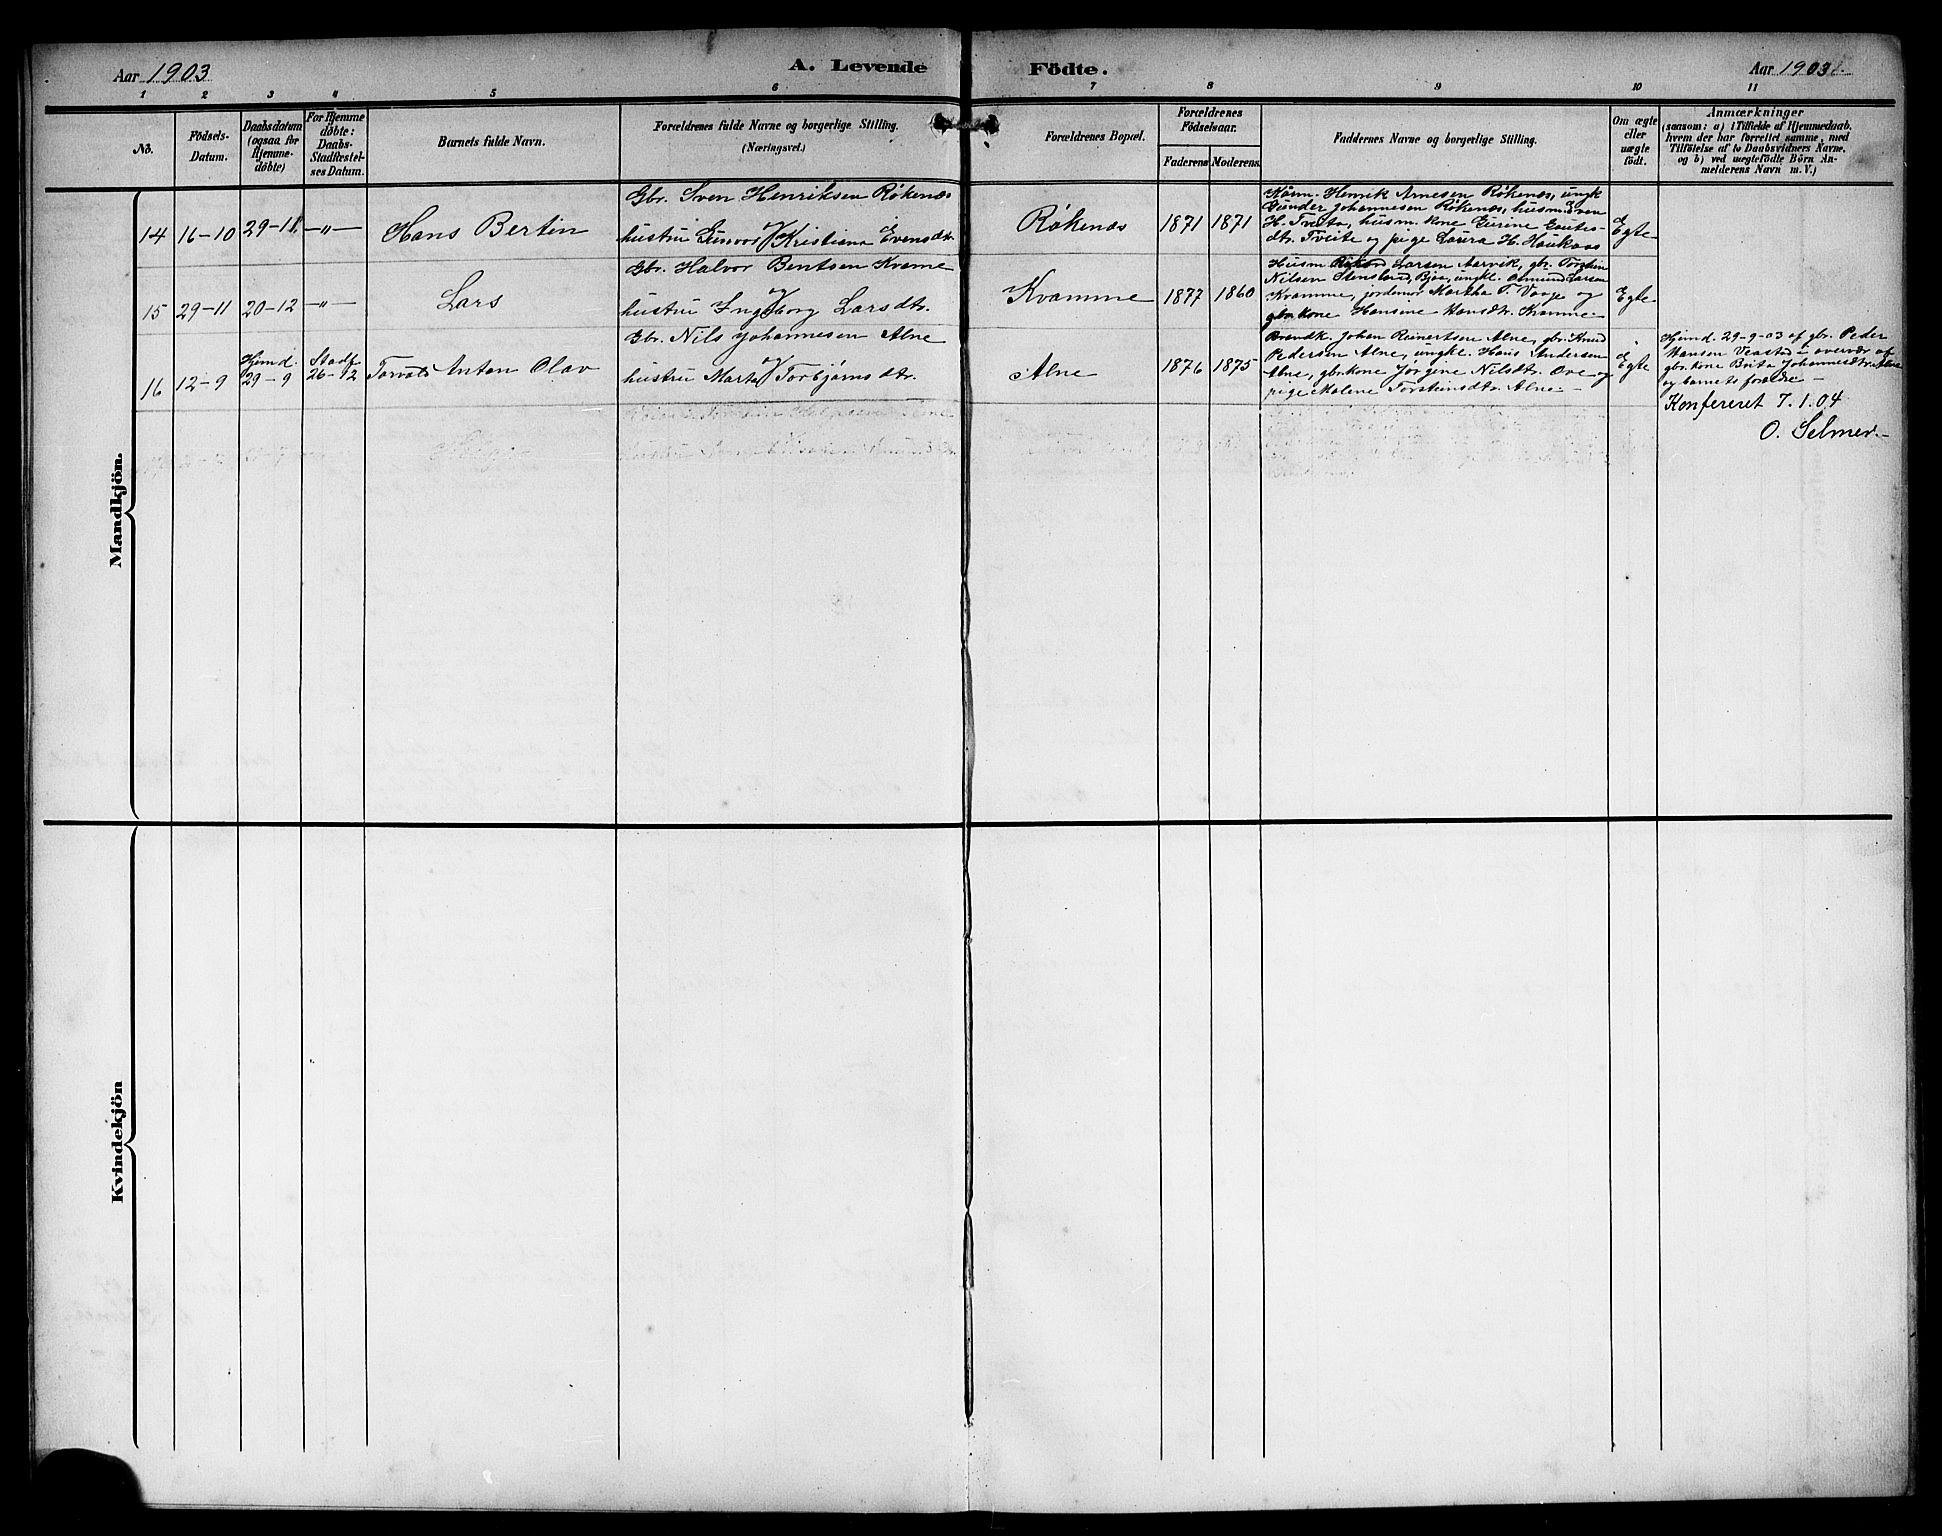 Aar 1903
A. Levende Födte.
Aar 1903
1 2 3 4 5 6 7 8 9 10 11
No.
Födsels-Datum.
Daabsdatum (ogsaa for Hjemme-döbte)
For Hjemme döbte: Daabs-Stadfæstel-ses Datum.
Barnets fulde Navn.
Forældrenes fulde Navne og borgerlige Stilling.
(Næringsvei.)
Forældrenes Bopæl.
Forældrenes Födselsaar.
Faderens Moderens.
Faddernes Navne og borgerlige Stilling.
Om ægte eller uægte födt.
Anmærkninger
(saasom: a) i Tilfælde af Hjemmedaab,
hvem der har forrettet samme, med
Tilföielse af to Daabsvidners Navne,
og b) ved uægtefödte Börn An-
melderens Navn m. V.)
Mandkjön.
14 16-10 29-11 -"- Hans Bertin
Gbr. Sven Henriksen Røkenæs
og
hustru Gunvor Kristiana Evensdtr.
Røkenæs 1871 1871
Kårm. Henrik Arnesen Røkenæs, ungk
Gunder Johannesen Røkenæs, husm. Sven
H. Tveita, husm. kone Gurene Gautes-
dtr. Tveite og pige Laura H. Haukaas
Egte
15 29-11 20-12 -"- Lars
Gbr. Halvor Bentsen Kvame
og
hustru Ingeborg Larsdtr.
Kvamme 1877 1860
Husm Larsen Aarvik, gbr. Torstein
Nilsen Stensland, Bjoa, ungk. Osmund Larsen
Kvamme, jordemor Martha T. Vaage og
gbr.kone Hansine Hansdtr. Kvamme.
Egte
16 12-9 Hjemd. 29-9 Stadf. 26-12 Torvald Anton Olav
Gbr. Nils Johannesen Alne
og
hustru Marta Torbjørnsdtr.
Alne 1876 1875
Brandk. Johan Reinertsen Alne, gbr. Knud
Pedersen Alne, ungk. Hans Andersen
Alne, gbr.kone Jørgine Nilsdtr. Ove og
pige Malene Torsteinsdtr. Alne.-
Egte
Hjemd. 29-9-03 af gbr. Peder
Hansen Veastad i overvær af
gbr.kone Brita Johannesdtr. Alne
og barnets forældre -
Konfereret 7.1.04
O. Selmer.-
Kvindekjön